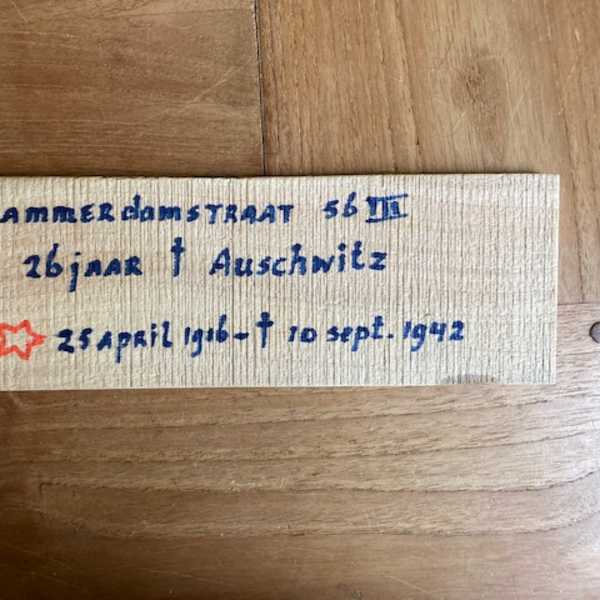 AMMERdamSTRAAT 56 III
26 jAAR † Auschwitz
25 April 1916 - † 10 sept. 1942